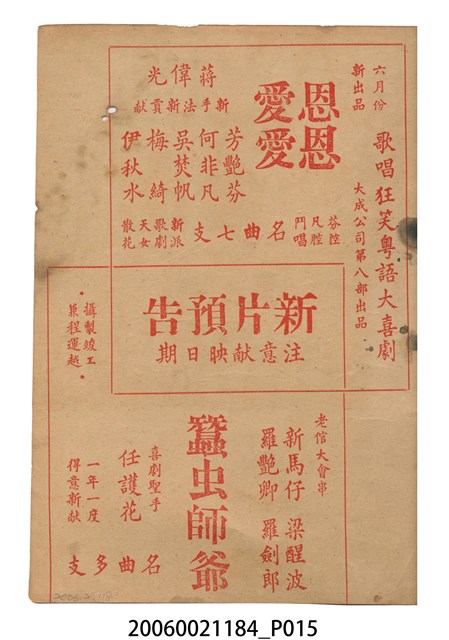 六月份
新出品
歌唱狂笑粵語大喜劇
大成公司第八部出品
恩恩
愛愛
蔣偉光
新手法新貢獻
芳艷芬
何非凡
吳焚帆
梅綺
伊秋水
芬腔
凡腔
鬥唱
名曲七支
新派
歌劇
天女
散花
新片預告
注意献映日期
·攝製竣工
兼程運越·
老倌大會串
新馬仔 梁醒波
羅艷卿 羅劍郎
蠶虫師爺
喜劇聖手
任護花
一年一度
得意新献
名曲多支
20060021184_P015